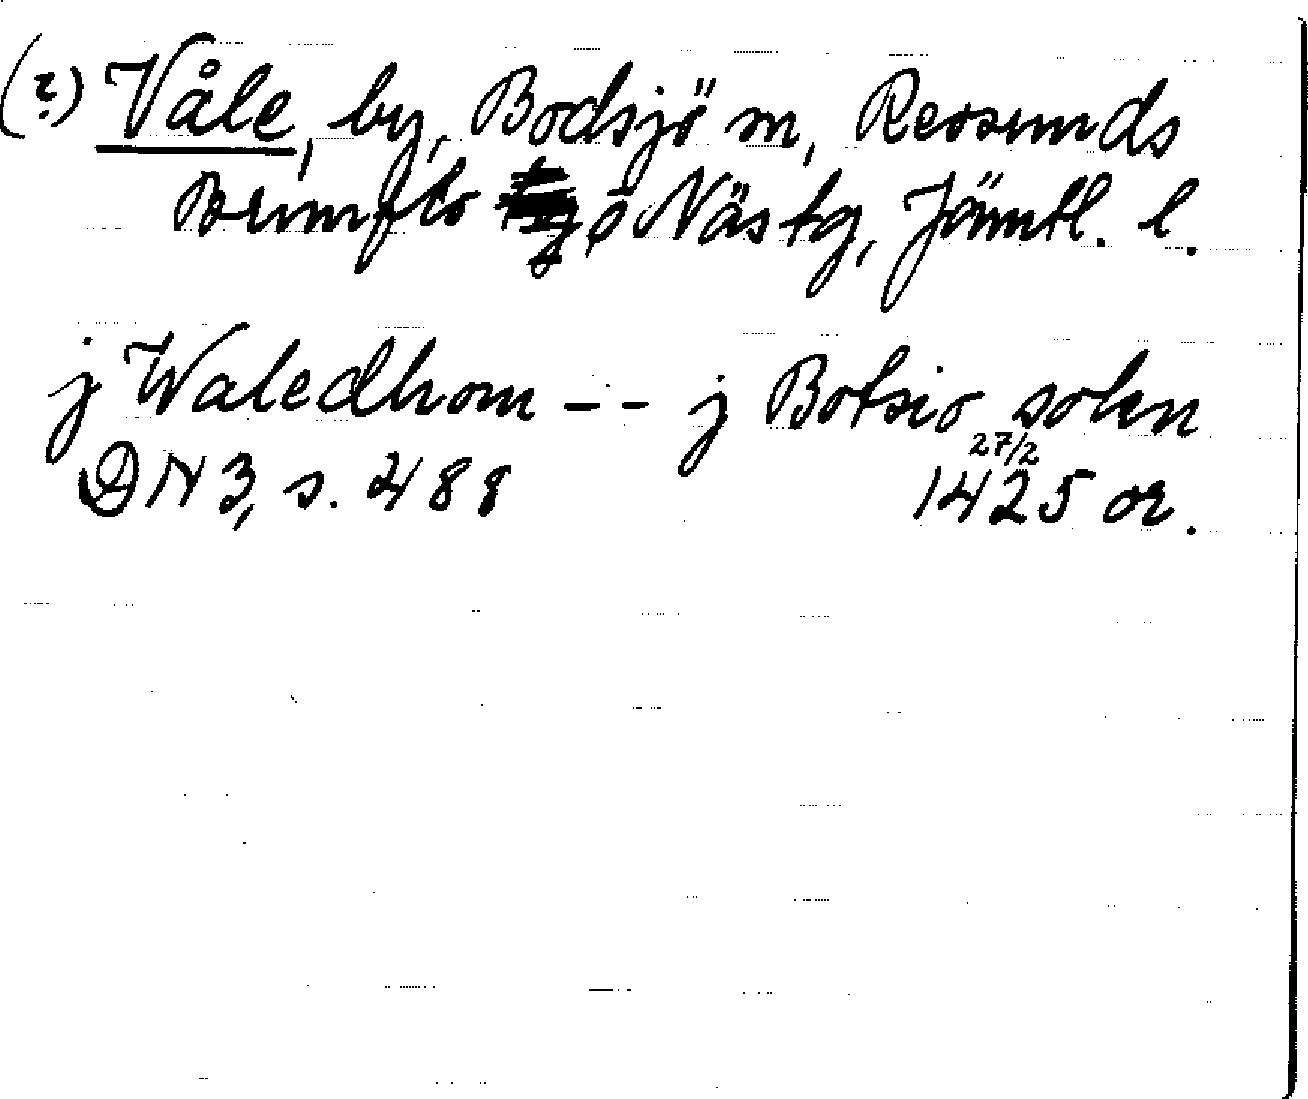 (?) Våle, by, Bodsjö sn, Revsunds
Brunflo o Näs tg, Jämtl. l.
j Waledhom -- j Botsio sokn
27/2
DN 3, s. 488 1425 or.